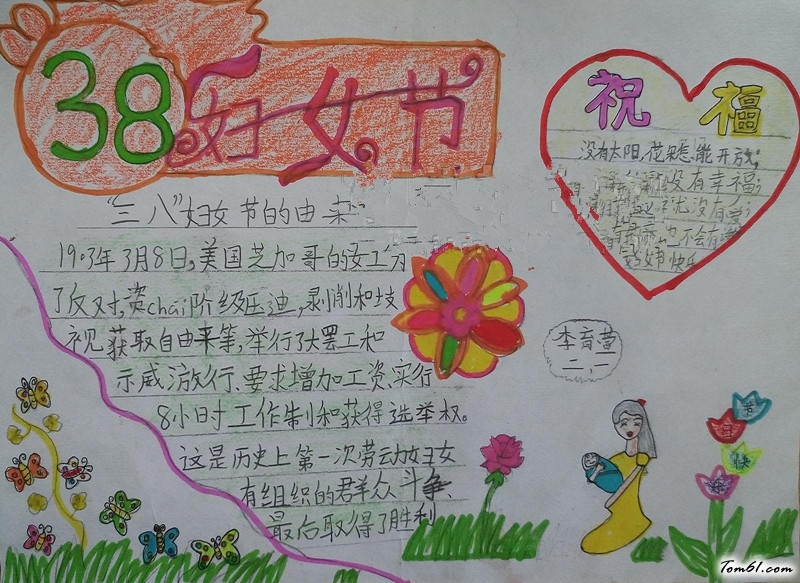 38妇女节
"三八"妇女节的由来
1903年3月8日,美国芝加哥的女工为
了反对,资chǎi阶级压迪,剥削和歧
视获取自由来等,举行了大罢工和
示威游行、要求增加工资、实行
8小时工作制和获得选举权。
这是历史上第一次劳动妇女
有组织的君羊众斗争、
最后取得了胜利
祝福
没有太阳,花朵怎能开放;
没有幸福;
就没有
也不会有
节快乐
李育萱
二、一
节
日
快
Tom61.com